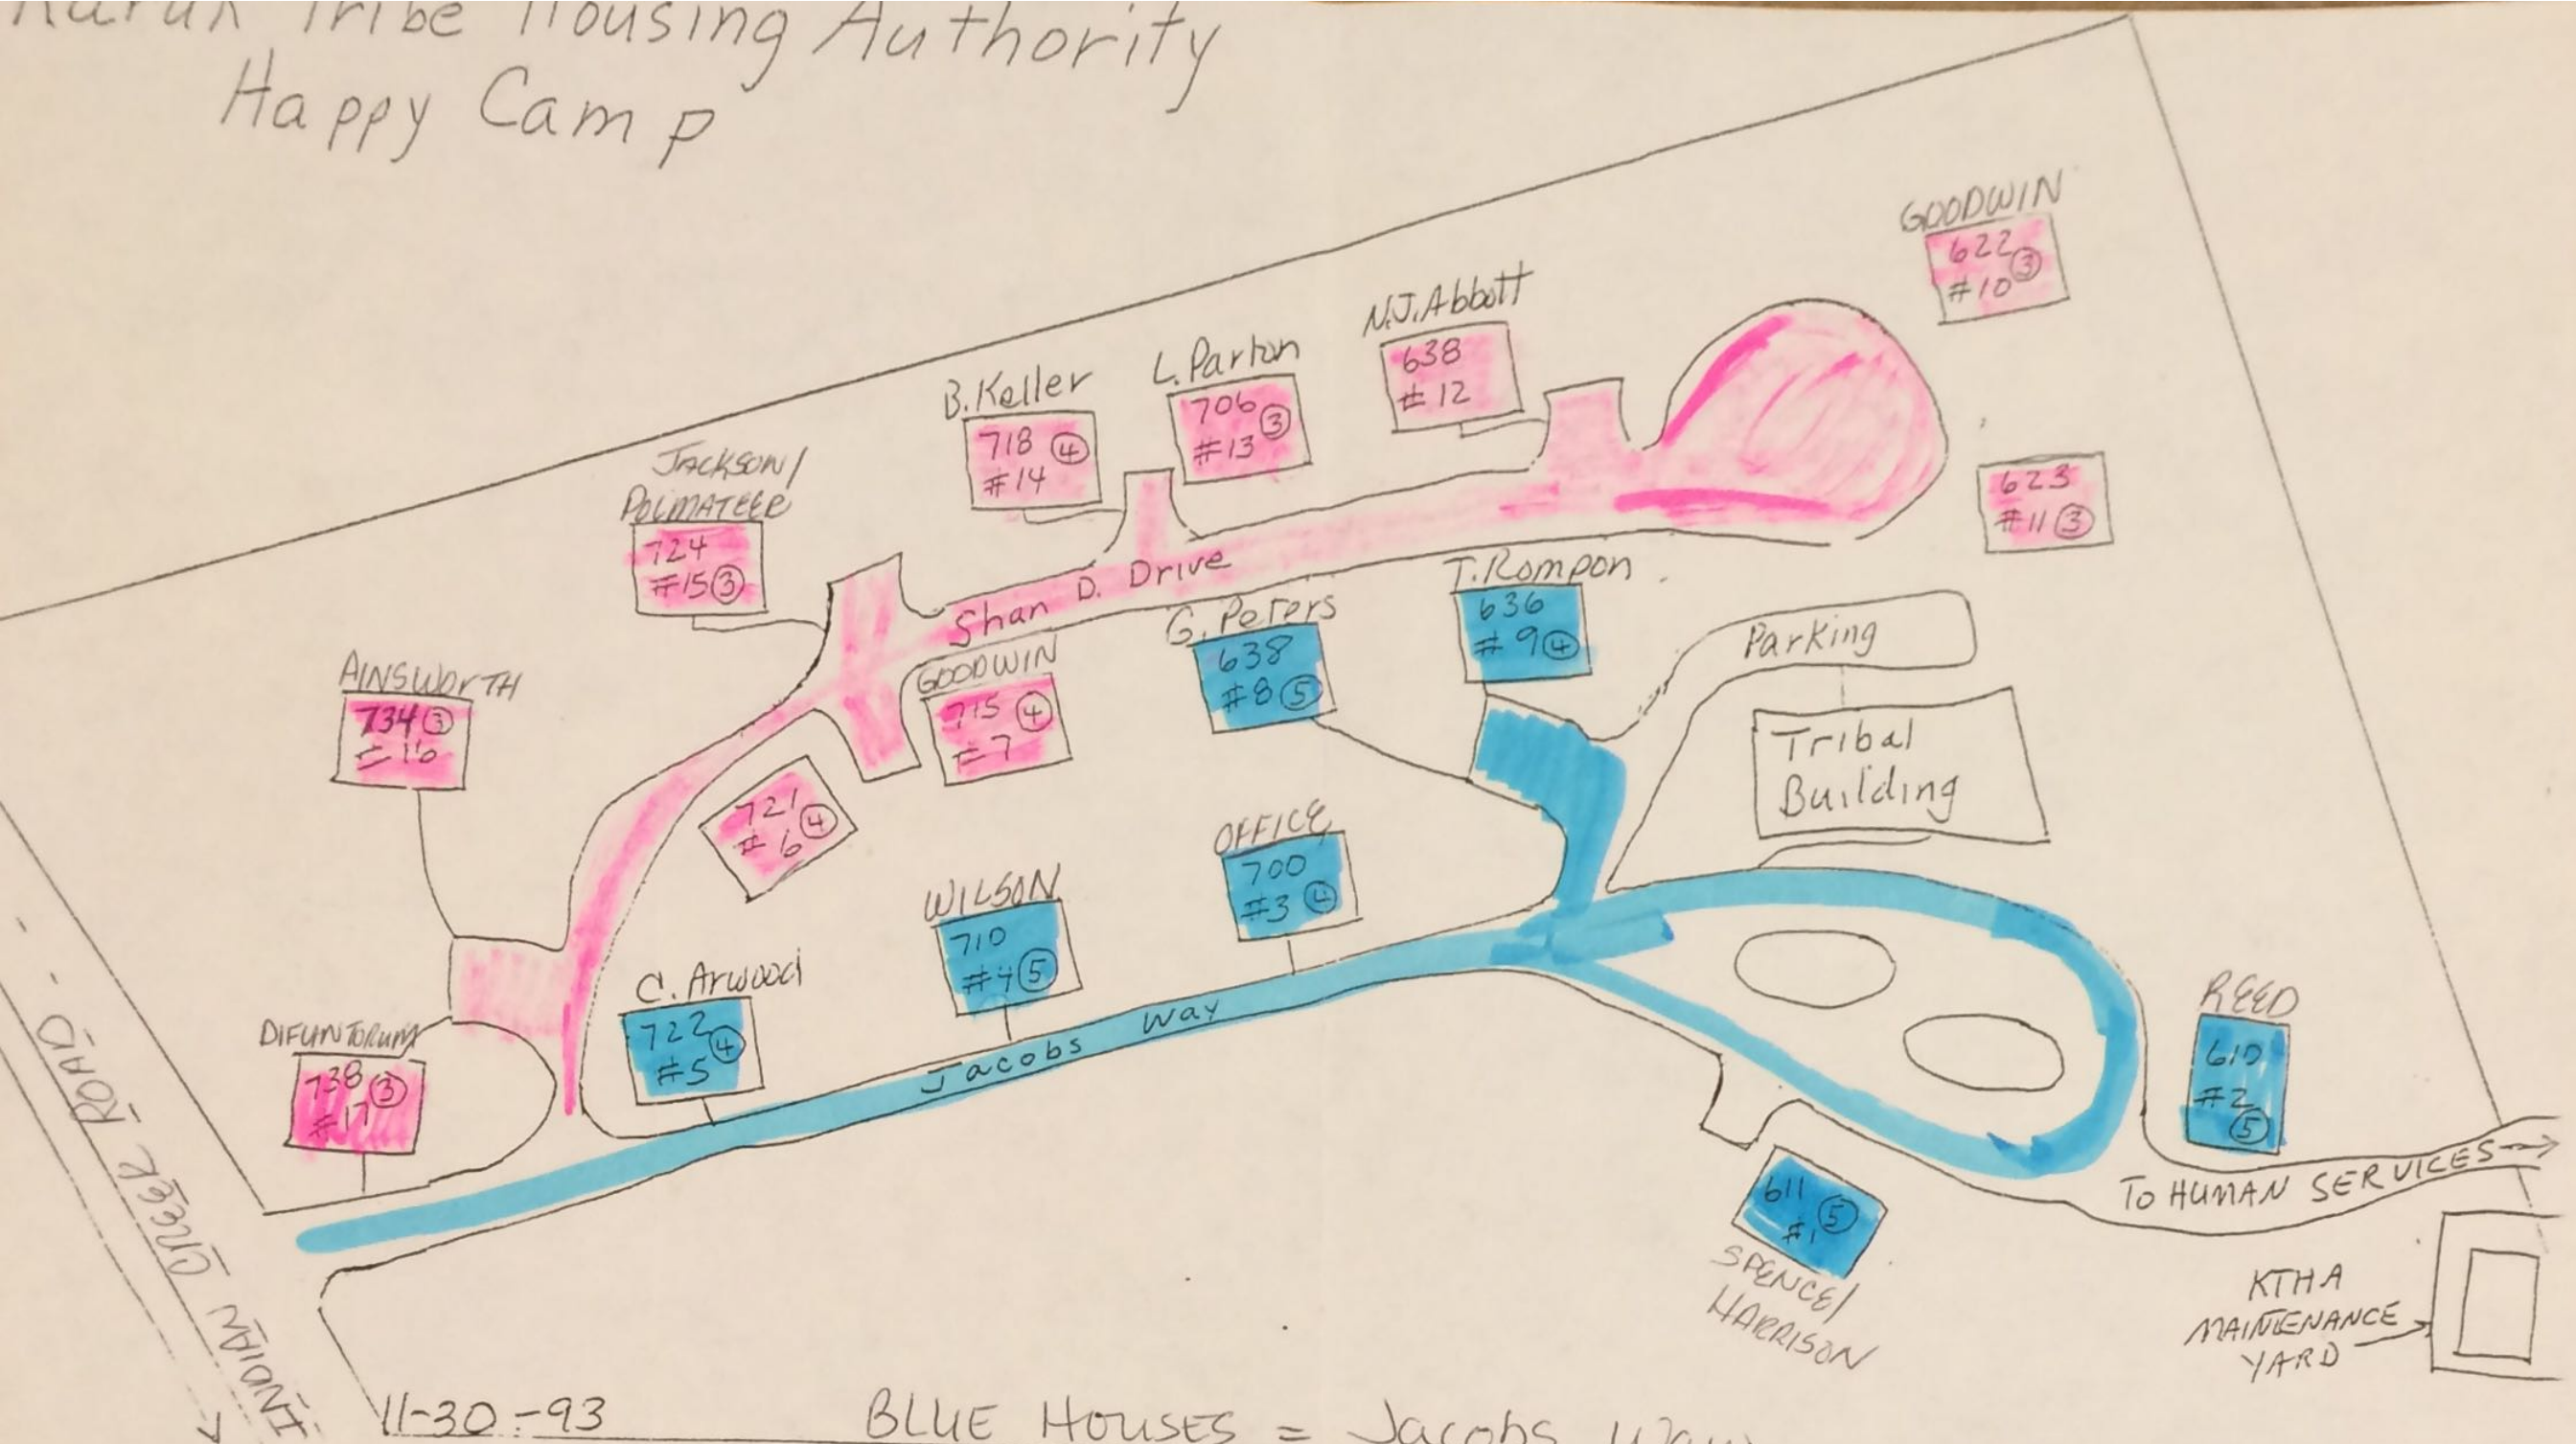 Karuk Tribe Housing Authority
Happy Camp
GOODWIN
622 ③
#10
N.J. Abbott
638
#12
L. Parton
706 ③
#13
B. Keller
718 ④
#14
JACKSON/
POLMATEER
724
#15 ③
623
#11 ③
Shan D. Drive
T. Rompon
636
#9 ④
G. Peters
638
#8 ⑤
Parking
GOODWIN
715 ④
#7
AINSWORTH
734 ③
#16
Tribal
Building
721 ④
#6
OFFICE
700
#3 ④
WILSON
710
#4 ⑤
C. Arwood
722 ④
#5
Jacobs Way
DIFUNTORUM
738 ③
#17
REED
610
#2
⑤
TO HUMAN SERVICES →
611 ⑤
#1
SPENCE/
HARRISON
KTHA
MAINTENANCE
YARD
INDIAN CREEK ROAD
11-30-93
BLUE HOUSES = Jacobs Way